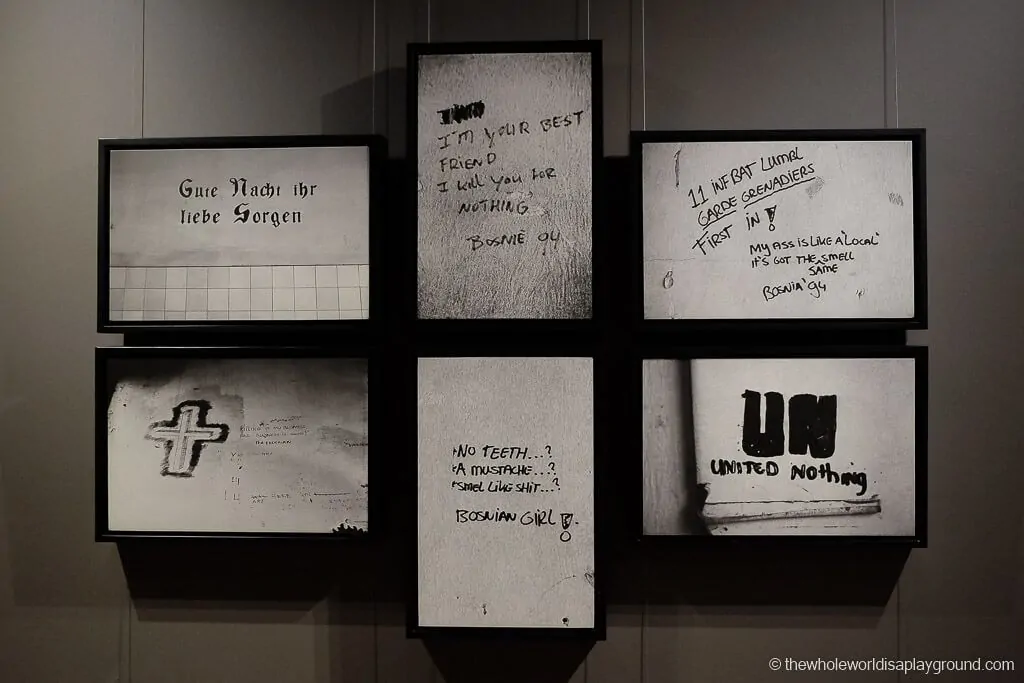 Gute Nacht ihr
liebe Sorgen
I'M YOUR BEST
FRIEND
I kill you FOR
NOTHING
BOSNIE 94
11 INF BAT LUMBL
GARDE GRENADIERS
FIRST IN !
MY ASS IS LIKE A "LOCAL"
IT'S GOT THE SMELL
SAME
BOSNIA '94
NO TEETH...?
A MUSTACHE...?
SMEL LIKE SHIT...?
BOSNIAN GIRL!
UN
UNITED NOthing
© thewholeworldisaplayground.com